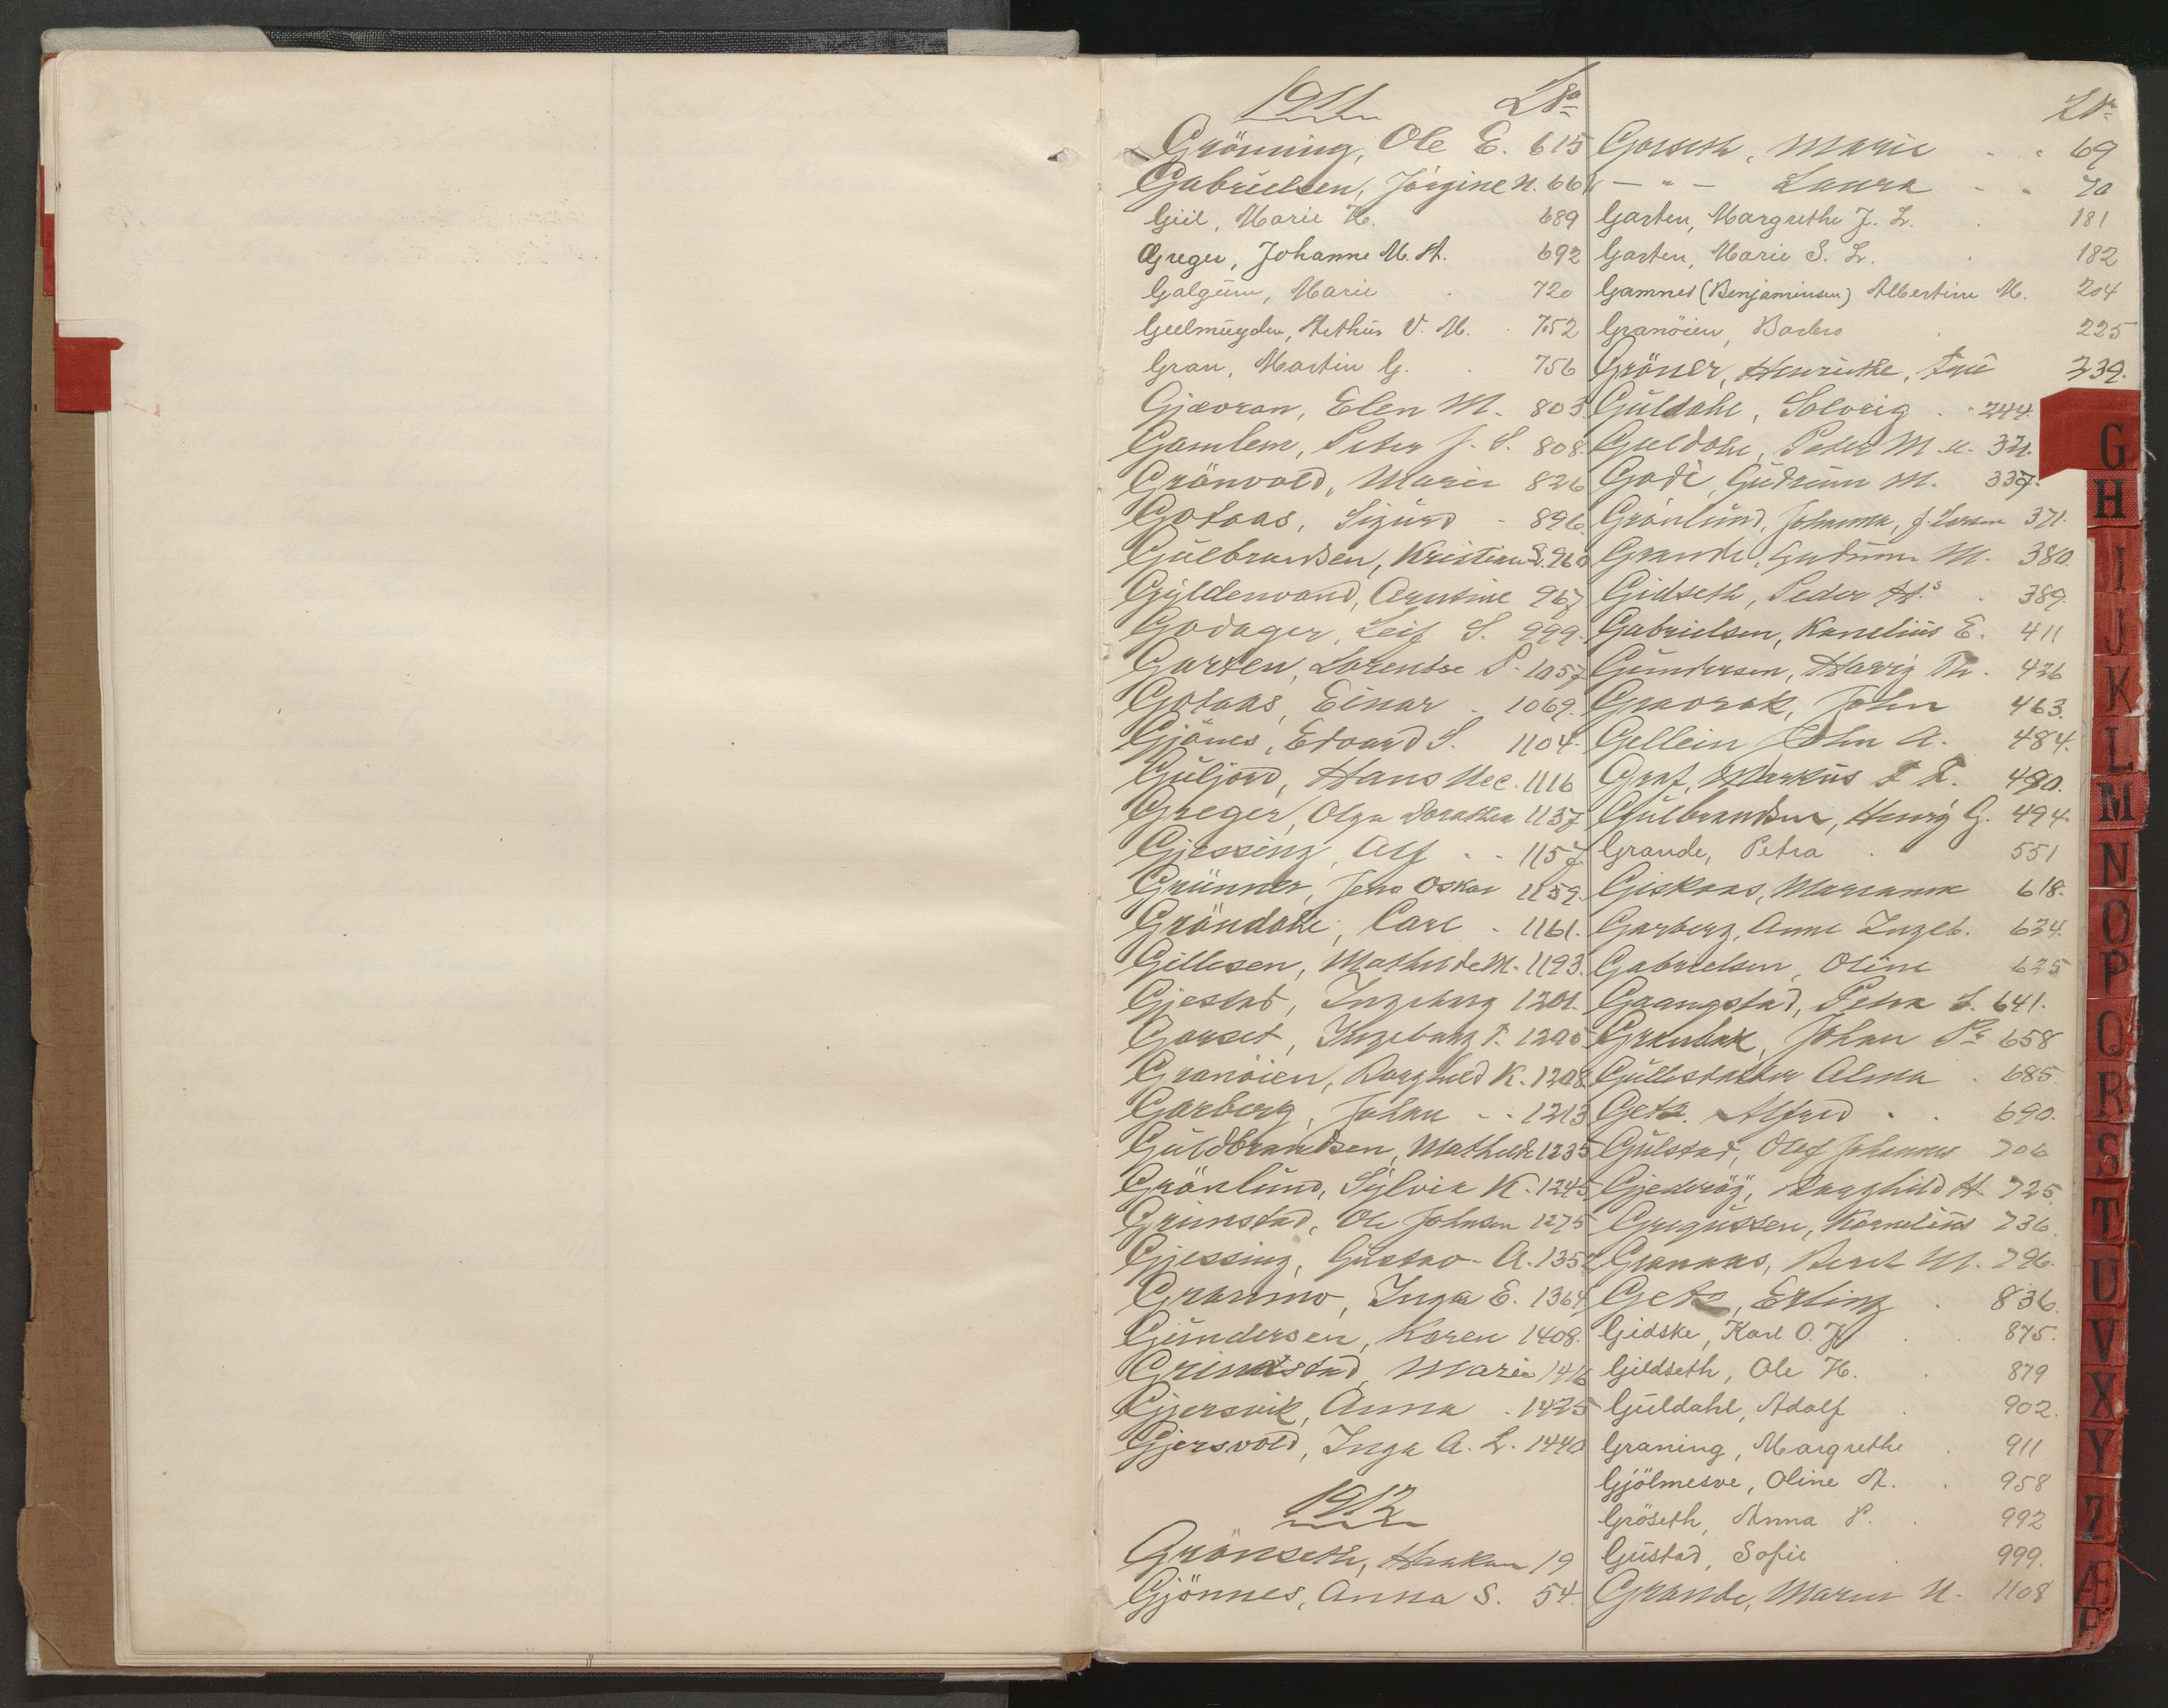 1911 No
Gröning, Ole E. 615
Gabrielsen, Jörgine N. 661
Giil, Marie K. 689
Greger, Johanne M. A. 692
Galgum, Marie 720
Geelmuyden, Arthur V. M. 752
Gran, Martin G. 756
Gjævran, Elen M. 803.
Gamlem, Peter J. S. 808.
Grönvold, Marie 826
Gotaas, Sigurd 896
Gulbrandsen, Kristian S. 960
Gyldenvand, Arntine 967
Godager, Leif S. 999.
Garten, Lorentse P. 1057
Gotaas, Einar 1069.
Gjönes, Edvard S. 1104.
Guljord, Hans 1116
Greger, Olga Dorothea 1137
Gjessing, Alf 1157
Grünner, Jens Oskar 1159.
Gröndahl, Carl 1161.
Gillesen, Mathilde M. 1193.
Gjestad, Ingeborg 1201.
Gorset, Ingeborg P. 1205
Granöien, Borghild K. 1208
Garberg, Johan 1213
Guldbrandsen, Mathilde 1235
Grönlund, Sylvia K. 1245
Grimstad, Ole Johnsen 1275
Gjessing, Gustav A. 1352
Granmo, Inga E. 1364
Gundersen, Karen 1408.
Grindstad, Marie 1416
Gjersvik, Anna 1425
Gjersvold, Inga A. L. 1440
1912
Grönseth, Haakon 19
Gjönnes, Anna S. 54.
No
Gorseth, Marie 69
— " — Laura 70
Garten, Margrethe J. L. 181
Garten, Marie S. L. 182
Gamnes (Benjaminsen) Albertine M. 204
Granöien, Barbro 225
Gröner, Henriette, fru 239.
Guldahl, Solveig 244.
Guldahl, Peter M. 321.
Godi, Gudrun M. 337.
Grönlund, Johanna, f. Larsen 371.
Grande, Gudrun M. 380.
Gidseth, Peder A.s 389.
Gabrielsen, Kornelius E. 411
Gundersen, Harrig Th. 426
Gravrok, John 463.
Gellein John A. 484.
Graf, Markus 490.
Gulbrandsen, Henry G. 494.
Grande, Petra 551
Giskaas, Marianne 618.
Garberg, Anne Ingeb. 624.
Gabrielsen, Oline 625
Gaangstad, Petra S. 641.
Grenbak, Johan 658
Gullestatter Alma 685.
Getz. Alfred 690.
Gulstad, Olaf Johannes 706
Gjedvög, Ragnhild H. 725.
Gregussen, Kornelius 736.
Grannas, Beret M. 796.
Getz, Erling 836.
Gidske, Karl O. J. 875.
Gildseth, Ole H. 879
Guldahl, Adolf 902.
Graning, Margrethe 911
Gjölmesve, Oline A. 958
Gröseth, Anna P. 992
Gustad, Sofie 999.
Grande, Maren N. 1108
G
H
I
J
K
L
M
N
O
P
Q
R
S
T
U
V
X
Y
Z
Æ